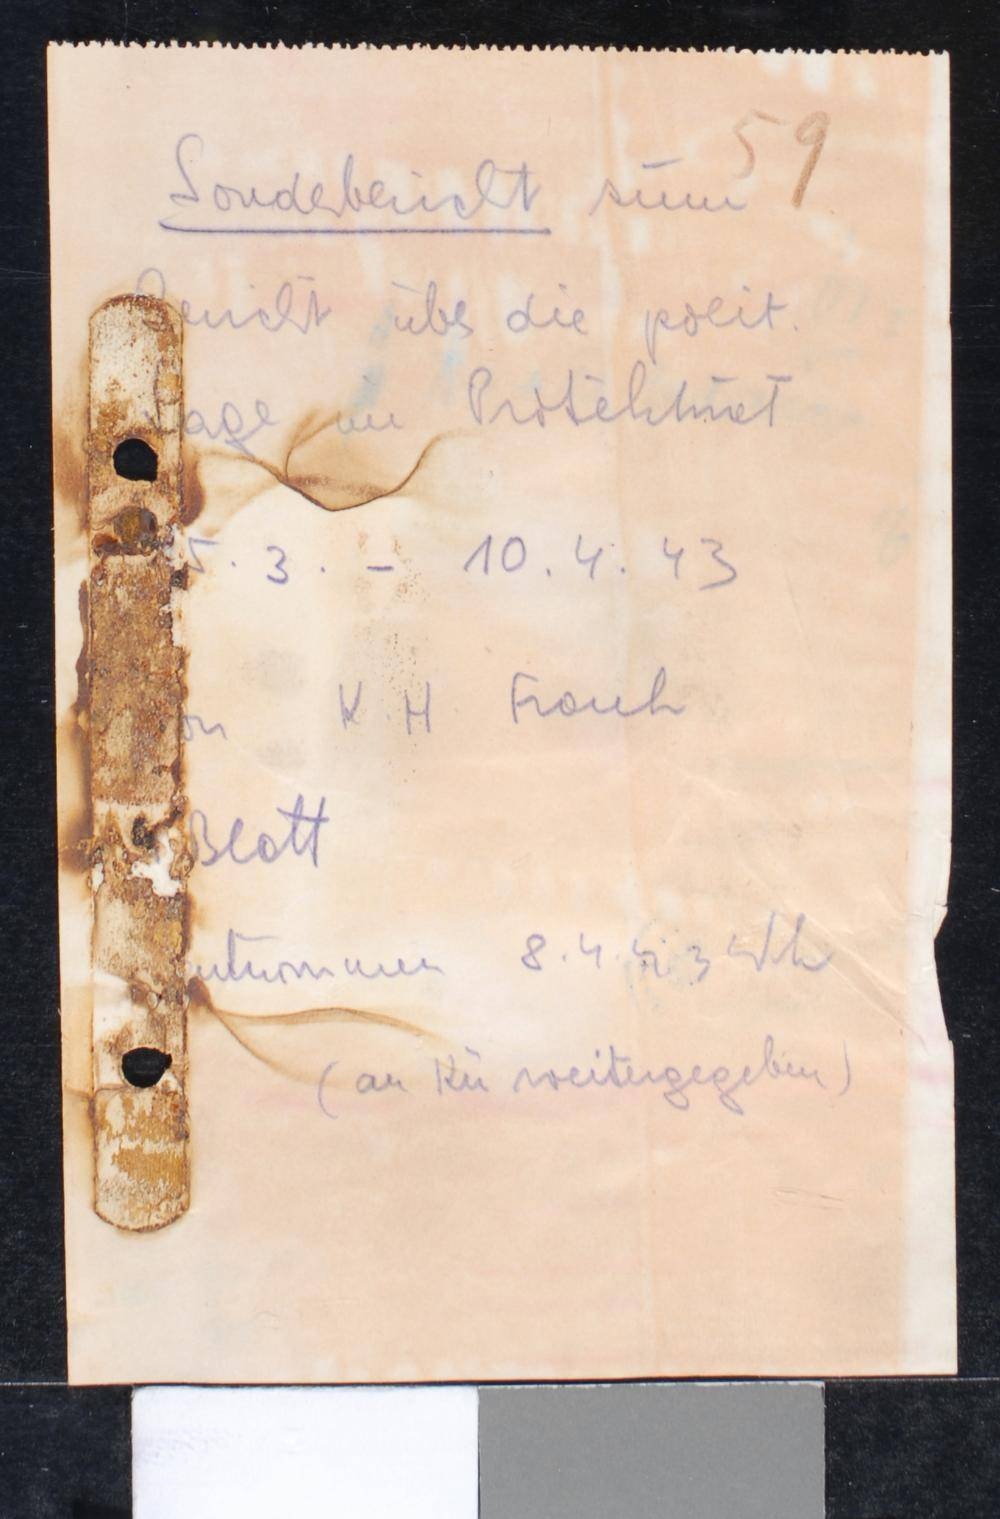 59
Sonderbericht zum
Bericht über die polit.
Lage im Protektorat
5. 3. – 10. 4. 43
on K H Frank
Blatt
entnommen 8.4.43
(an Kü weitergegeben)